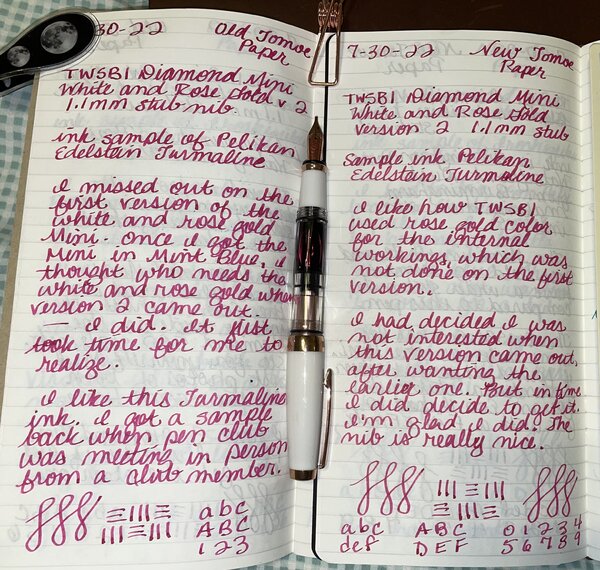 30-22 Old Tomoe
Paper
TWSBI Diamond Mini
White and Rose Gold v 2
1.1mm stub nib.
ink sample of Pelikan
Edelstein Turmaline
I missed out on the
first version of the
white and rose gold
Mini. once I got the
Mini in Mint Blue, I
thought who needs the
white and rose gold when
version 2 came out.
— I did. It just
took time for me to
realize.
I like this Turmaline
ink. I got a sample
back when pen club
was meeting in person
from a club member.
abc
ABC
123
7-30-22 New Tomoe
Paper
TWSBI Diamond Mini
White and Rose Gold
version 2 1.1mm stub
Sample ink Pelikan
Edelstein Turmaline
I like how TWSBI
used rose gold color
for the internal
workings, which was
not done on the first
version.
I had decided I was
not interested when
this version came out,
after wanting the
earlier one. But in time
I did decide to get it.
I'm glad I did. The
nib is really nice.
abc ABC 01234
def DEF 56789